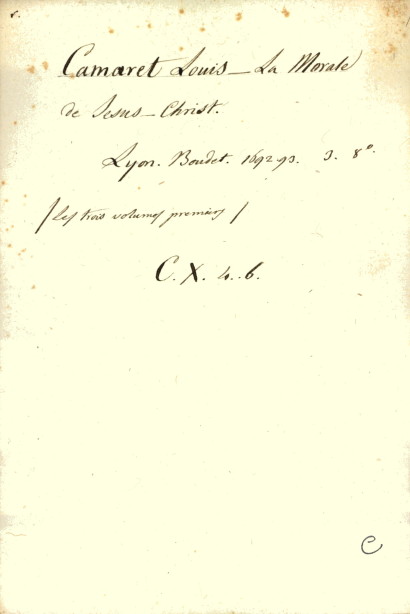 Camaret Louis — La Morale
de Jesus-Christ.
Lyon. Boudet. 1692-93. 3. 8°.
/ Les trois volumes premiers /
C. X. 4..6.
C